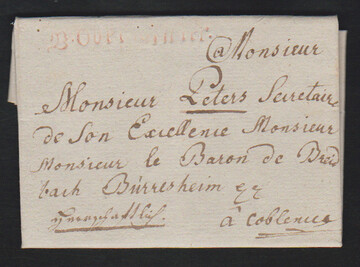 @Monsieur
Monsieur Peters Secretaire
de Son Excellence Monsieur
Monsieur le Baron de Breid
bach Bürresheim
à Coblence